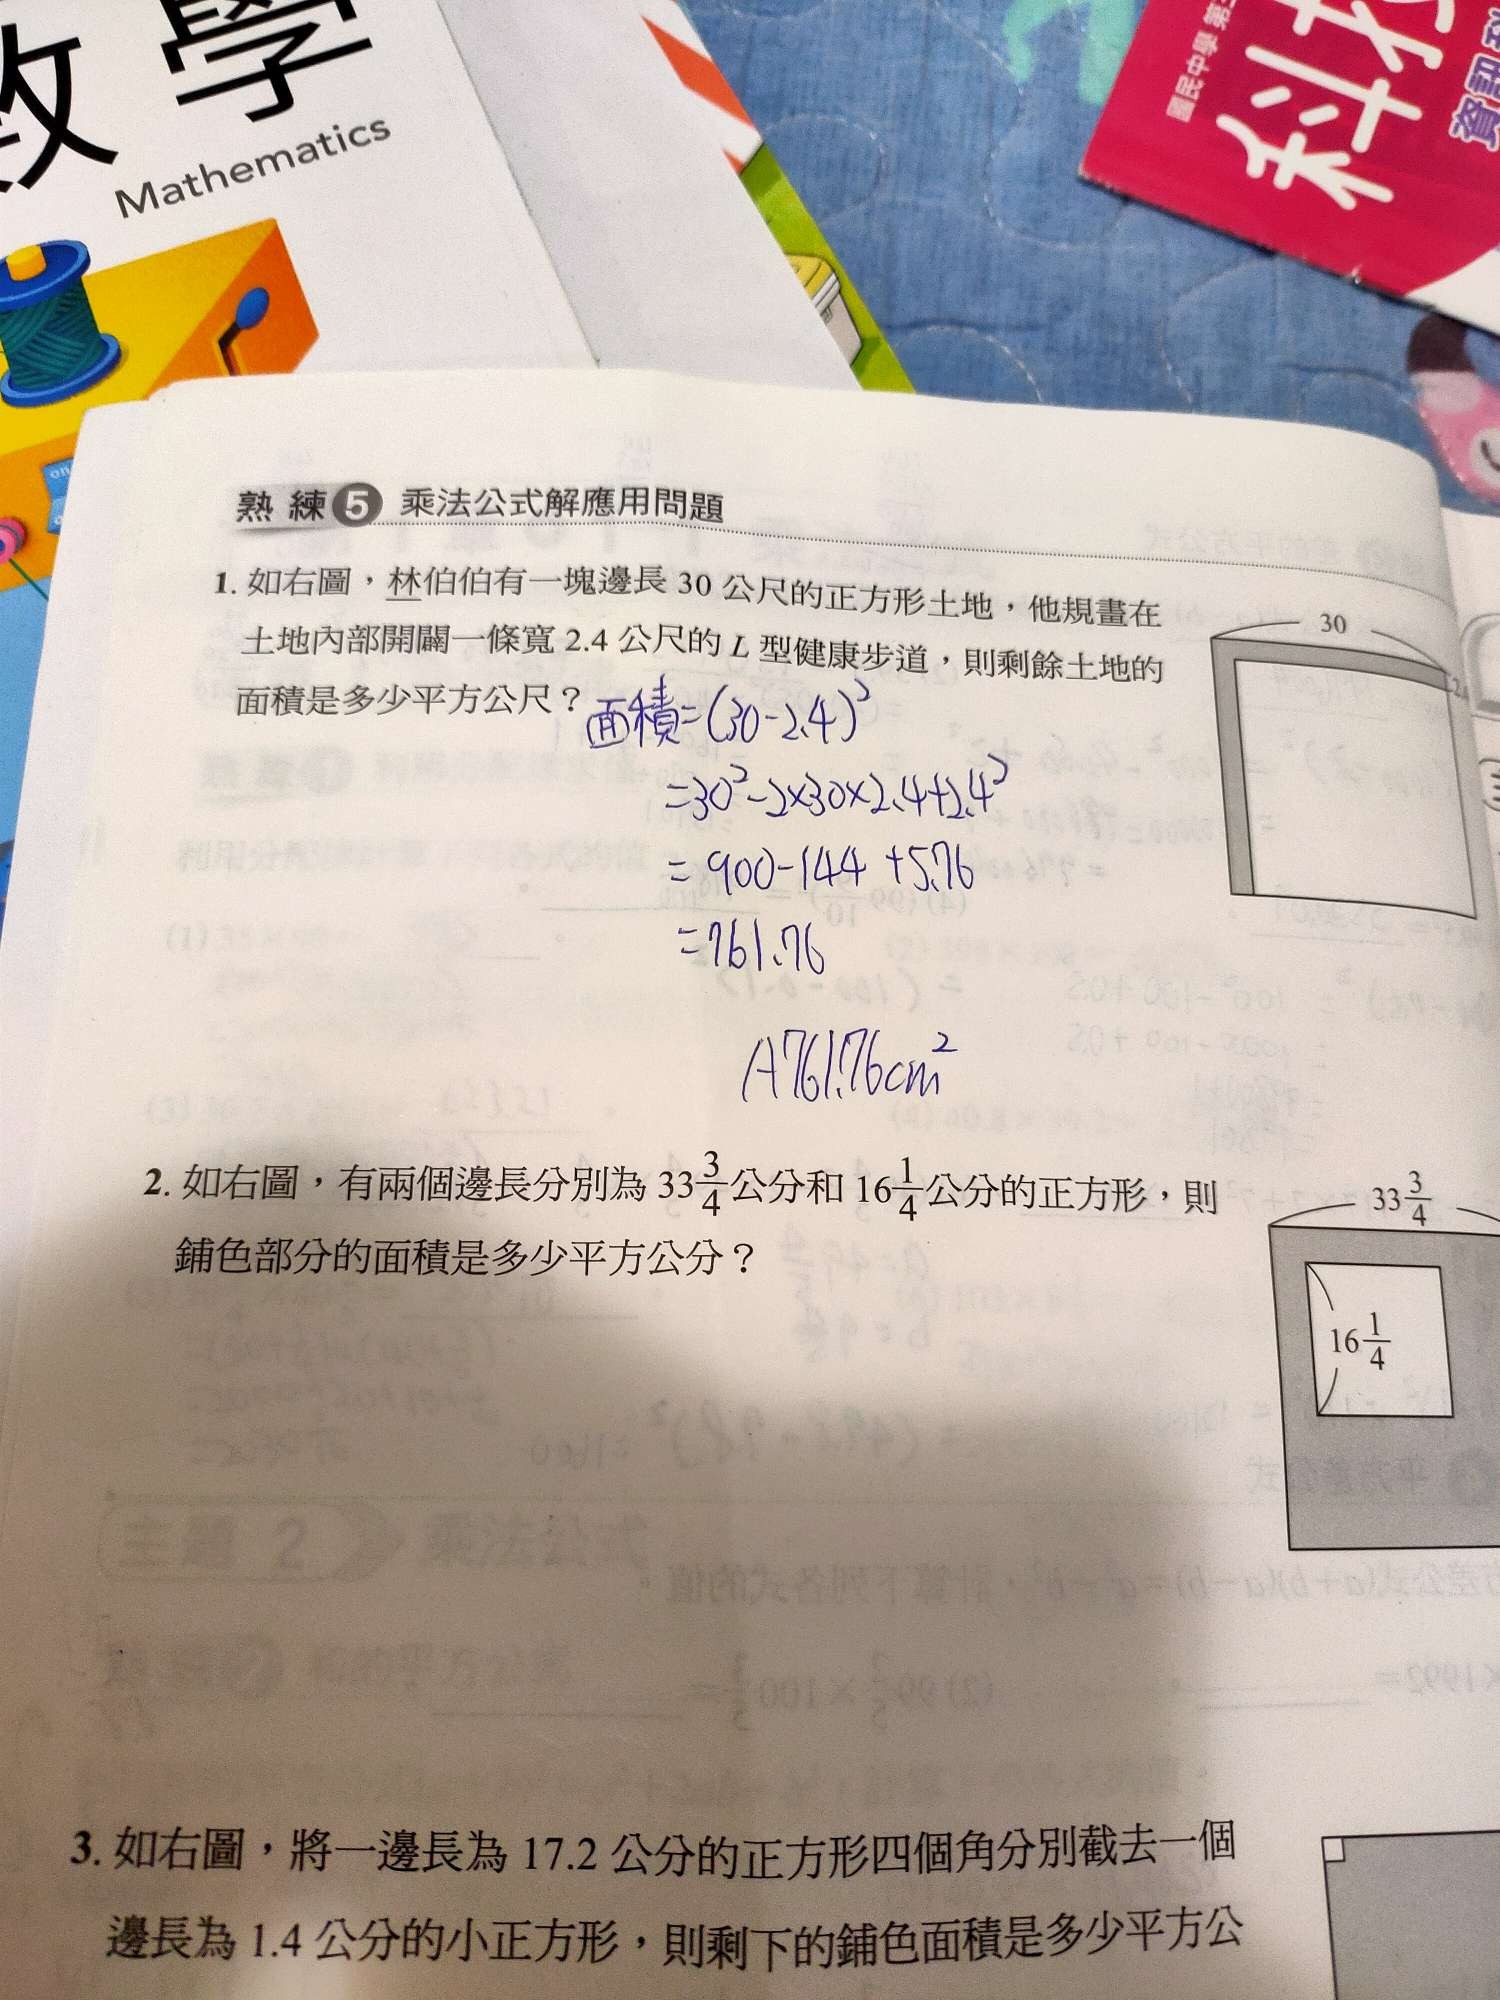 數學
Mathematics
國民中學
熟練5 乘法公式解應用問題
1. 如右圖，林伯伯有一塊邊長 30 公尺的正方形土地，他規畫在
土地內部開闢一條寬 2.4 公尺的 L 型健康步道，則剩餘土地的
面積是多少平方公尺？
面積=(30-2.4)²
=30²-2×30×2.4+2.4²
=900-144+5.76
=761.76
A761.76cm²
30
2. 如右圖，有兩個邊長分別為 33 3/4 公分和 16 1/4 公分的正方形，則
鋪色部分的面積是多少平方公分？
33 3/4
16 1/4
3. 如右圖，將一邊長為 17.2 公分的正方形四個角分別截去一個
邊長為 1.4 公分的小正方形，則剩下的鋪色面積是多少平方公